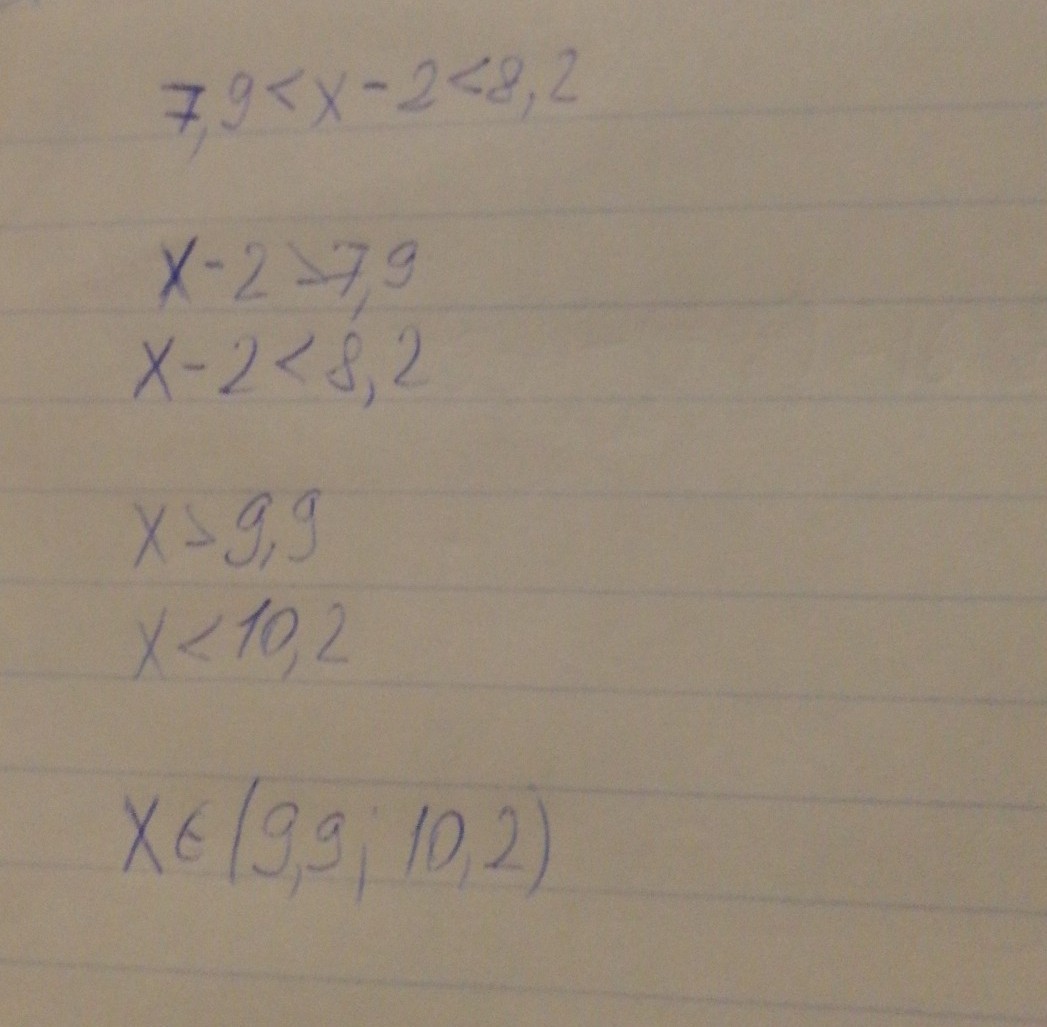 7,9<x-2<8,2
x-2>7,9
x-2<8,2
x>9,9
x<10,2
x∈(9,9; 10,2)